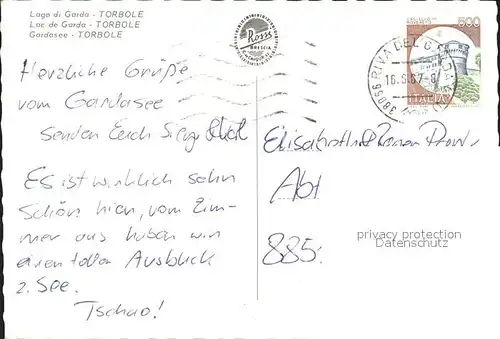 Lago di Garda - TORBOLE
Lac de Garda - TORBOLE
Gardasee - TORBOLE
Rossi
BRESCIA
500
38066 RIVA DEL GARDA
16.9.87-8
ITALIA
Herzliche Grüße
vom Gardasee
senden Euch
Es ist wirklich sehr
schön hier, vom Zim-
mer aus haben wir
einen tollen Ausblick
z. See.
Tschao!
Abt
885.
privacy protection
Datenschutz